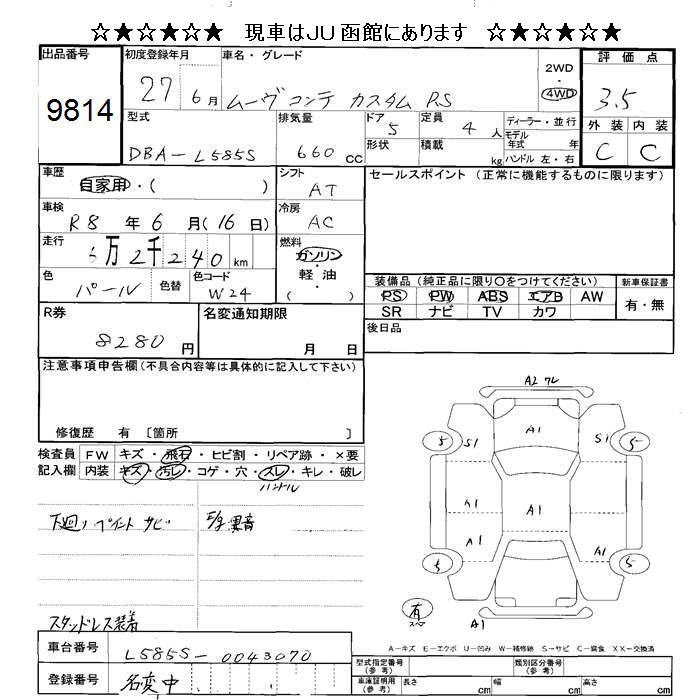 ☆★☆★☆★ 現車はJU函館にあります ☆★☆★☆★
出品番号
9814
初度登録年月
27 6月
車名・グレード
ムーヴ コンテ カスタム RS
2WD
・
4WD
評価点
3.5
外装 内装
C C
型式
DBA-L585S
排気量
660 cc
ドア
5
形状
定員
4人
積載
kg
ディーラー・並行
モデル年式 年
ハンドル 左・右
車歴
自家用・( )
シフト
AT
車検
R8年6月(16日)
冷房
AC
走行
6万2千240km
燃料
ガソリン
・
軽油
( )
色
パール
色替
色コード
W24
セールスポイント(正常に機能するものに限ります)
装備品(純正品に限り○をつけてください)
PS PW ABS エアB AW
SR ナビ TV カワ
新車保証書
有・無
後日品
R券
8280円
名変通知期限
月 日
注意事項申告欄(不具合内容等は具体的に記入して下さい)
修復歴 有 〔箇所 〕
検査員記入欄
FW キズ・飛石・ヒビ割・リペア跡・×要
内装 キズ・汚レ・コゲ・穴・スレ・キレ・破レ
ハンドル
下廻リ ペイント サビ
異音
スタッドレス装着
A2 ワレ
A1
5 S1
S1 5
A1
A1
A1
A1
5
5
有
スペア
A1
A-キズ E-エクボ U-凹み W-補修跡 S-サビ C-腐食 XX-交換済
車台番号
L585S-0043070
登録番号
名変中
型式指定番号(参考)
類別区分番号(参考)
車庫証明用(参考)
長さ cm
幅 cm
高さ cm